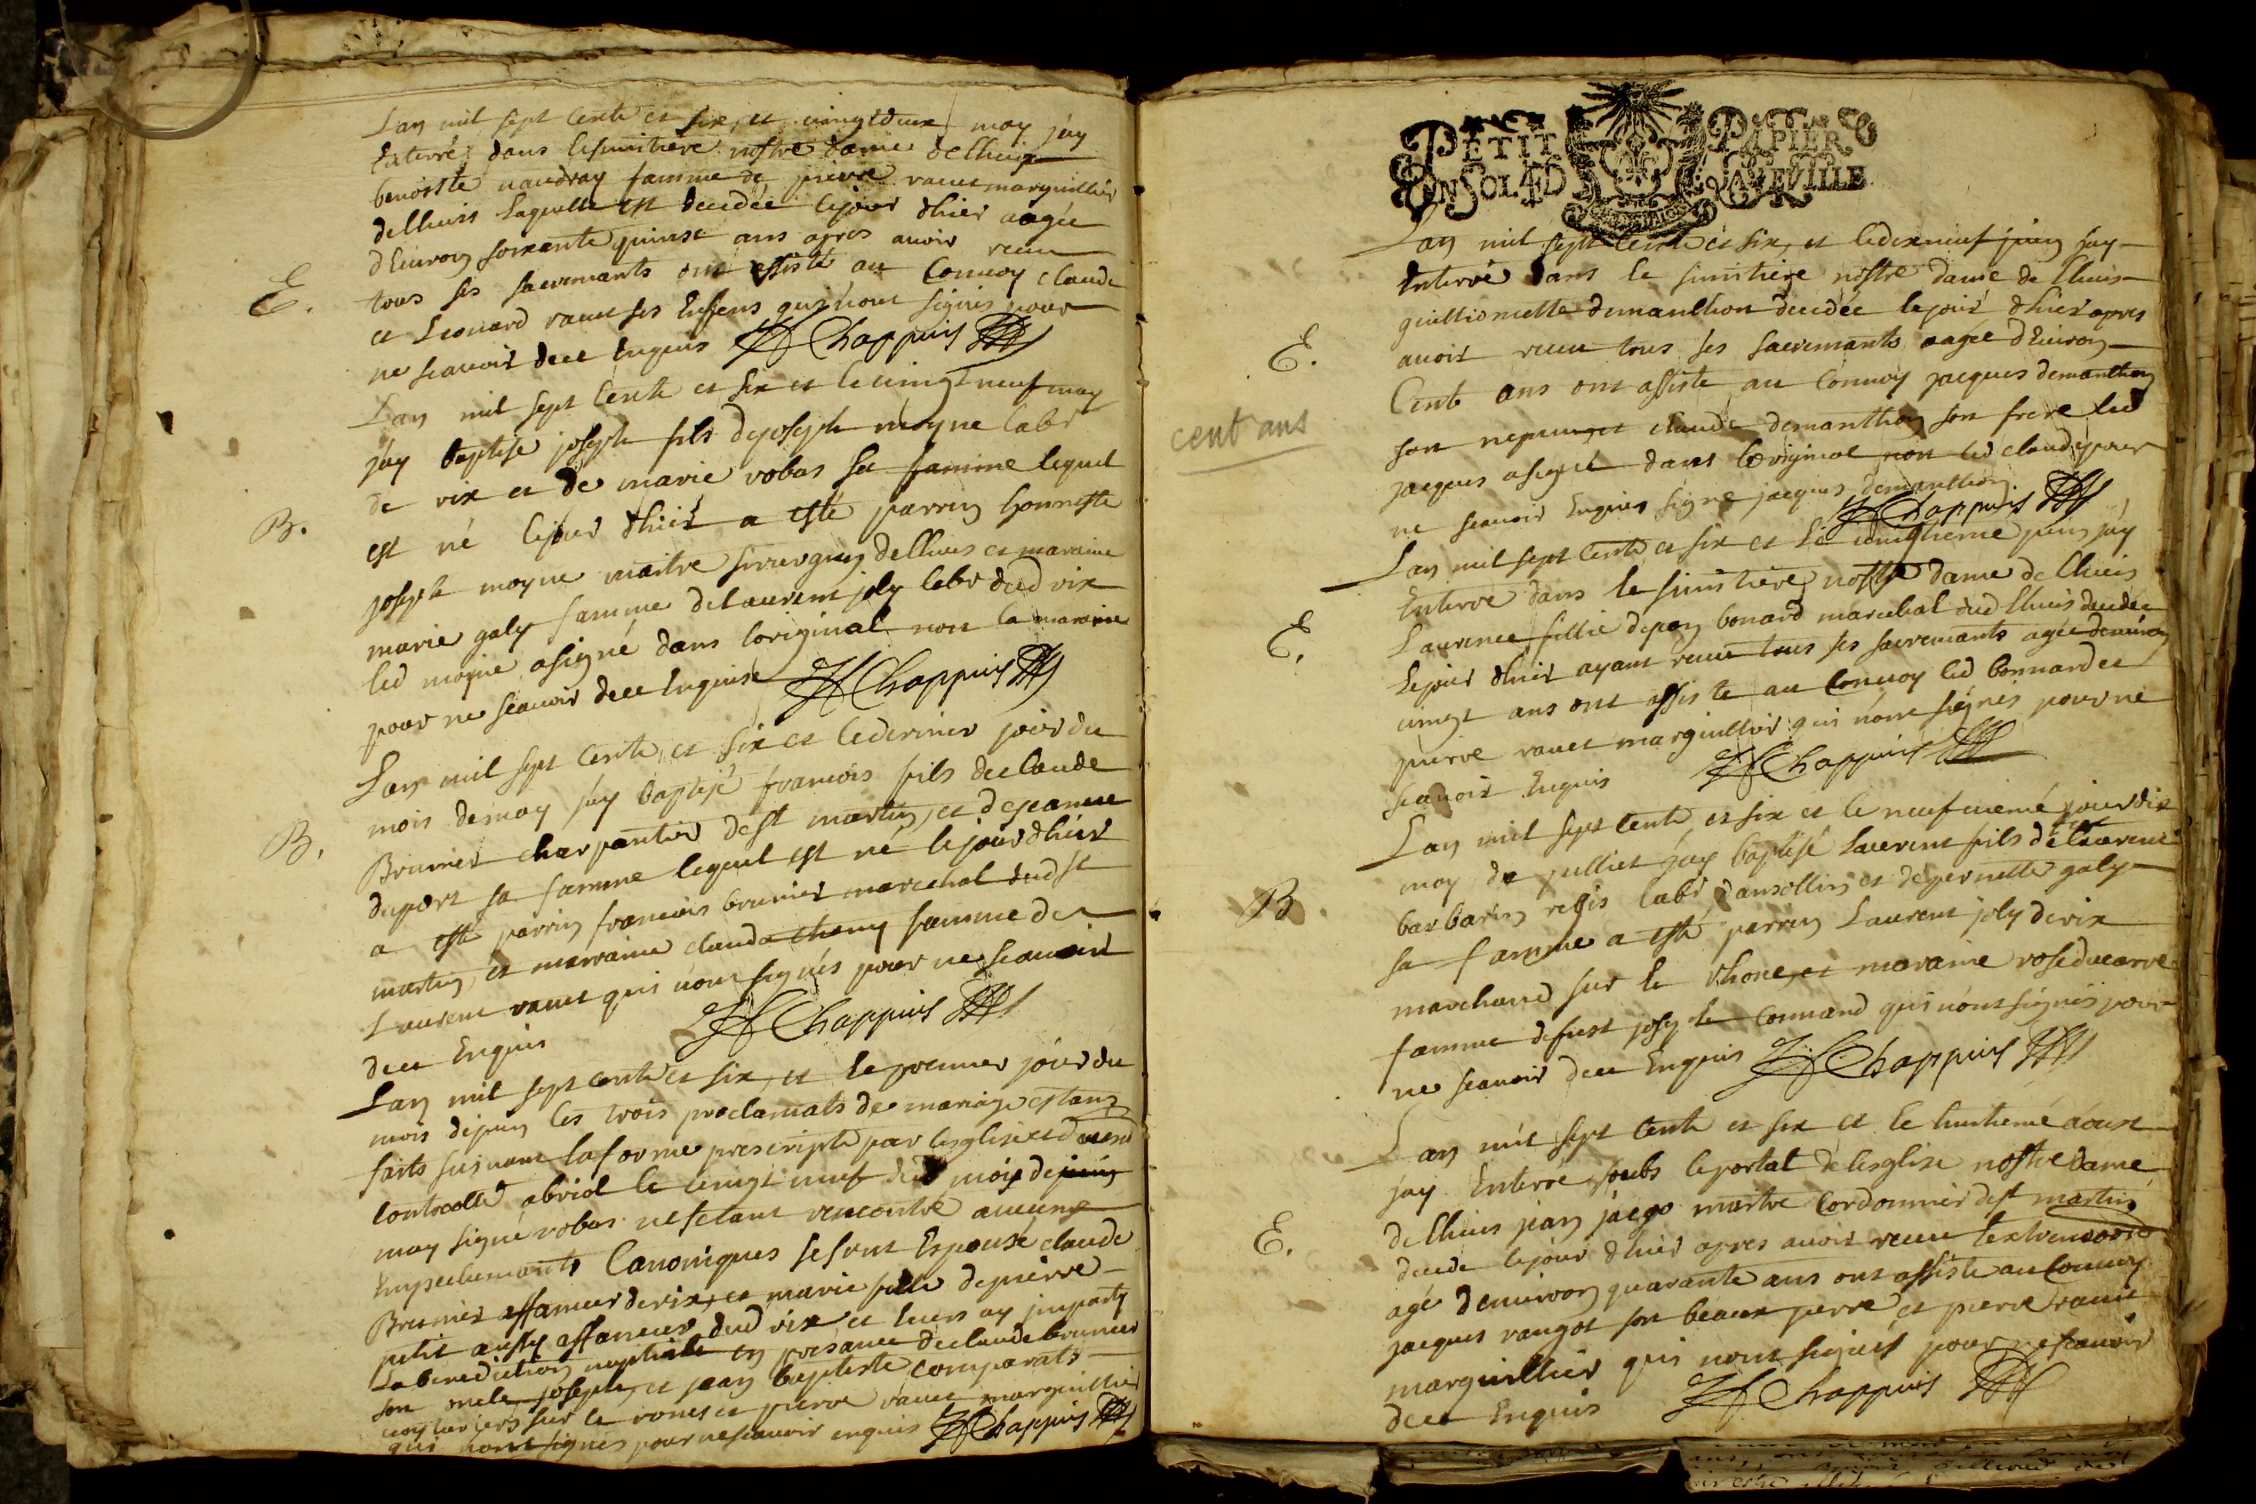 Lan mil sept cents et six, et vingt deux may jay
Enterré dans le simitiere nostre dame de lhuis
benoiste naudray famme de pierre vauet marguillier
de lhuis laquelle est decedée le jour dhier aagée
dEnviron soixante quinze ans apres avoir receu
E. tous ses sacremants ont assisté au Convoy claude
et Leonard vauet ses Enfens qui nont signés pour
ne scavoir de ce Enquis Chappuis
Lan mil sept cents et six et le vingt neuf may
jay baptisé joseph fils de joseph moyne labr
de rix et de marie robas sa famme lequel
B. est né le jour dhier a esté parrin honneste
joseph moyne maitre sirurgien de lhuis et maraine
marie galy famme de laurent joly labr dud rix
led moyne a signé dans loriginal non la maraine
pour ne scavoir de ce Enquise Chappuis
Lan mil sept cents et six et le dernier jour du
mois de may jay baptisé francois fils de claude
B. Brunier charpantier de st martin, et de jeanne
duport sa famme lequel est né le jour dhier
a esté parrin francois brunier marechal dud st
martin, et marraine clauda cheny famme de
Laurent vauet qui nont signés pour ne scavoir
de ce Enquis Chappuis
Lan mil sept cents et six, et le premier jour du
mois de juin les trois proclamats de mariage estans
faits suivant la forme prescripte par lesglise et
controllé a briol le vingt neuf du mois de juin
may signé robas ne sestant rencontré aucunx
Empechemants Canoniques se sont Espousé claude
Brunier affaneur de rix, et marie fille de pierre
petit aussy affaneur dud rix et leurs ay imparty
La benediction nuptiale en presance de claude brunier
son oncle joseph, et jean baptiste comparats
voyturiers sur le rones et pierre vauet marguillier
qui nont signés pour ne scavoir enquis Chappuis
PETIT PAPIER
UN SOL 4 D LA FEUILLE
Lan mil sept cents et six, et le dix neuf juin jay
Enterré dans le simitiere nostre dame de lhuis
guillio mette demanthon decedée le jour dhier apres
E. avoir receu tous ses sacremants aagée dEnviron
Cent ans ont assisté au Convoy jacques demanthon
cent ans
son nepveu, et claude demanthon son frere led
jacques a signé dans loriginal non led claude pour
ne scavoir Enquis signé jacques demanthon
Chappuis
Lan mil sept cents et six et le vingtieme juin jay
Enterré dans le simitiere nostre dame de lhuis
E. Laurence fillie de jean bonard marechal dud lhuis decedée
le jour dhier ayant receu tous ses sacremants agée denviron
vingt ans ont assisté au Convoy led bonnard et
pierre vauet marguillier qui nont signés pour ne
scavoir Enquis Chappuis
Lan mil sept cents et six et le neufviemé jour du
moy de julliet jay baptisé Laurent fils de laurent
B barbarin regis labr dansollin, et de pernette galy
sa famme a esté parrin Laurent joly de rix
marchand sur le rhone, et maraine rose ducarre
famme de fust joseph le Connand qui nont signés pour
ne scavoir de ce Enquis Chappuis
Lan mil sept cents et six et le huitiemé aoust
jay Enterré soubs le portal de lesglise nostre dame
E. de lhuis jean jaego maitre Cordonnier de st martin
decedé le jour dhier apres avoir receu lextremeonction
agé denviron quarante ans ont assisté au Convoy
jacques vangot son beaux perre et pierre vauet
marguillier qui nont signés pour ne scavoir
de ce Enquis Chappuis